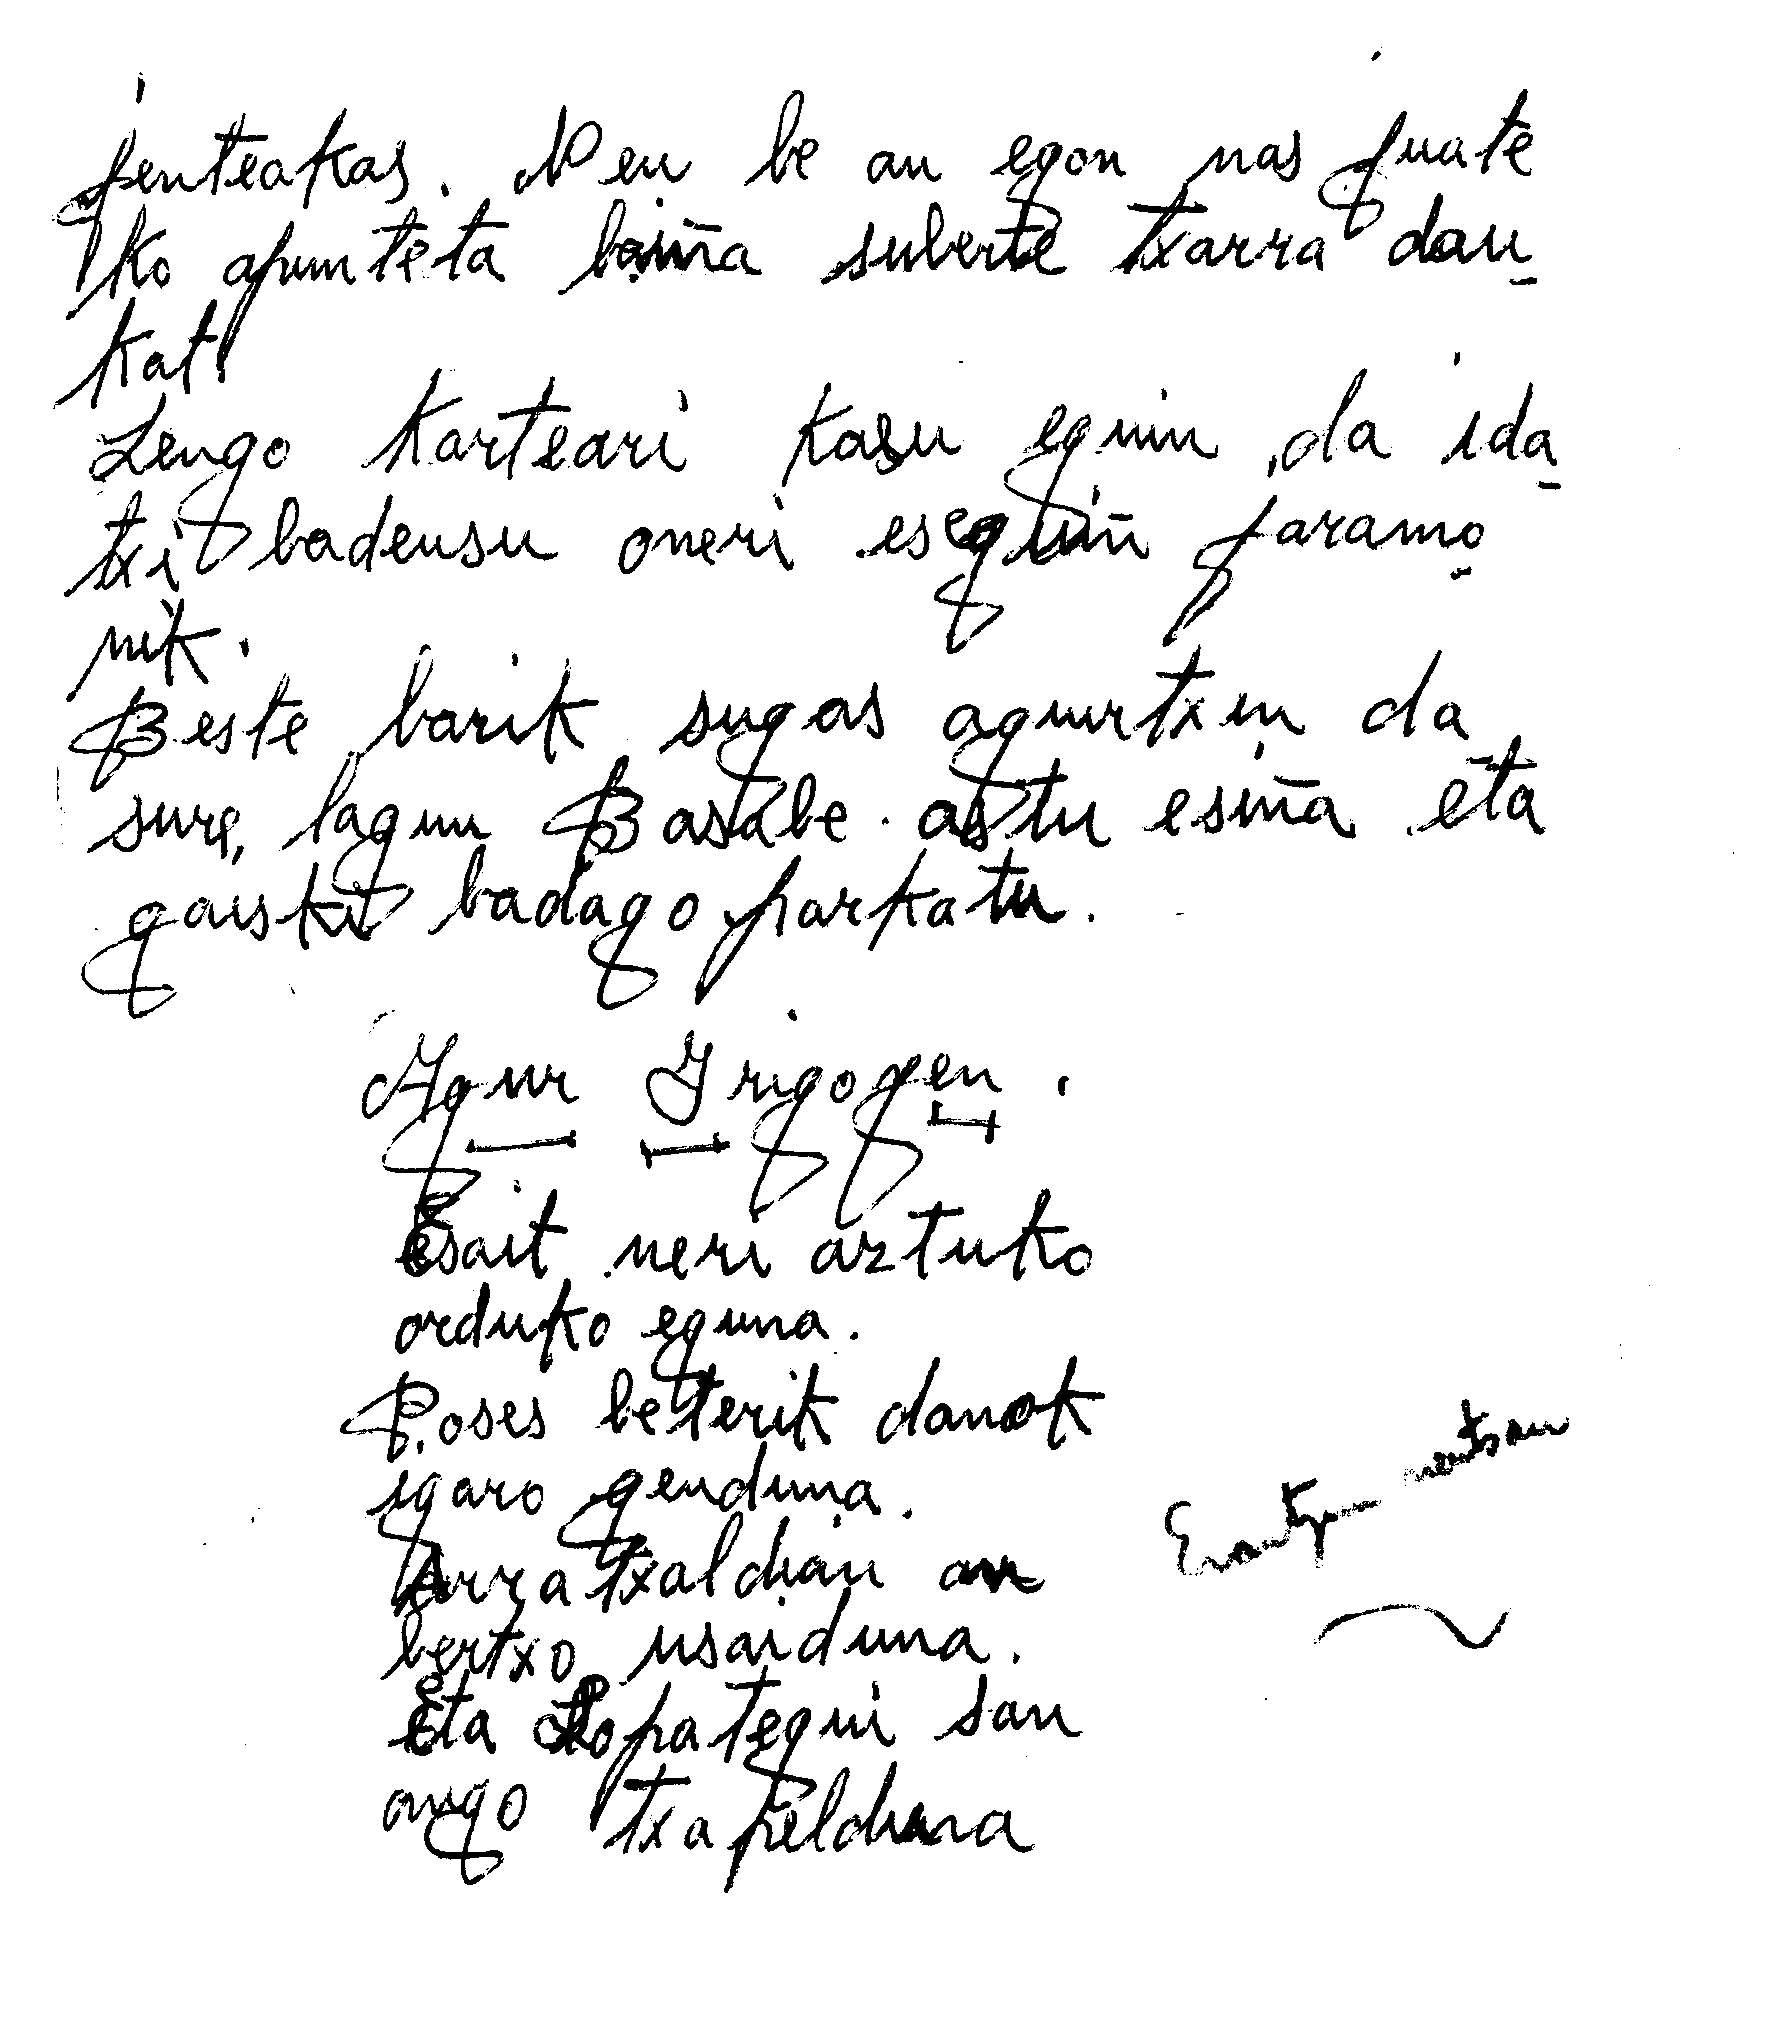 jenteakas. Neu be an egon nas juate
ko apunteta baiña suberte txarra dau-
kat.
Lengo karteari kasu eguin da ida-
txi badeusu oneri eseguiñ jaramo-
nik.
Beste barik sugas aguirtxen da
sure, lagun Basabe. astu esiña eta
gaiski badago parkatu.
Agur Irigogen.
Esait neri aztuko
orduko eguna.
Poses beterik danok
igaro genduna.
Arratxaldian an
bertxo usaiduna.
Eta Lopategui san
ango txapelduna